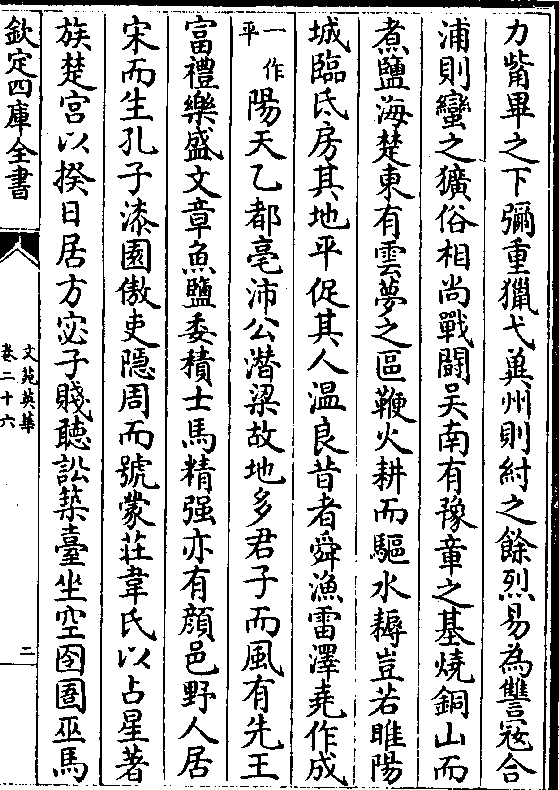 力觜畢之下彌重獵弋冀州則紂之餘烈易為讐㓂合
浦則蠻之獷俗相尚戰鬬吴南有豫章之基燒銅山而
煮鹽海楚東有雲夢之區鞭火耕而驅水耨豈若睢陽
城臨氐房其地平促其人温良昔者舜漁雷澤堯作成
一作平陽天乙都亳沛公潛梁故地多君子而風有先王
富禮樂盛文章魚鹽委積士馬精强亦有顔邑野人居
宋而生孔子漆園傲吏隱周而號蒙莊韋氏以占星著
族楚宮以揆日居方宓子賤聽訟築臺坐空囹圄巫馬
欽定四庫全書
文苑英華
卷二十六
二